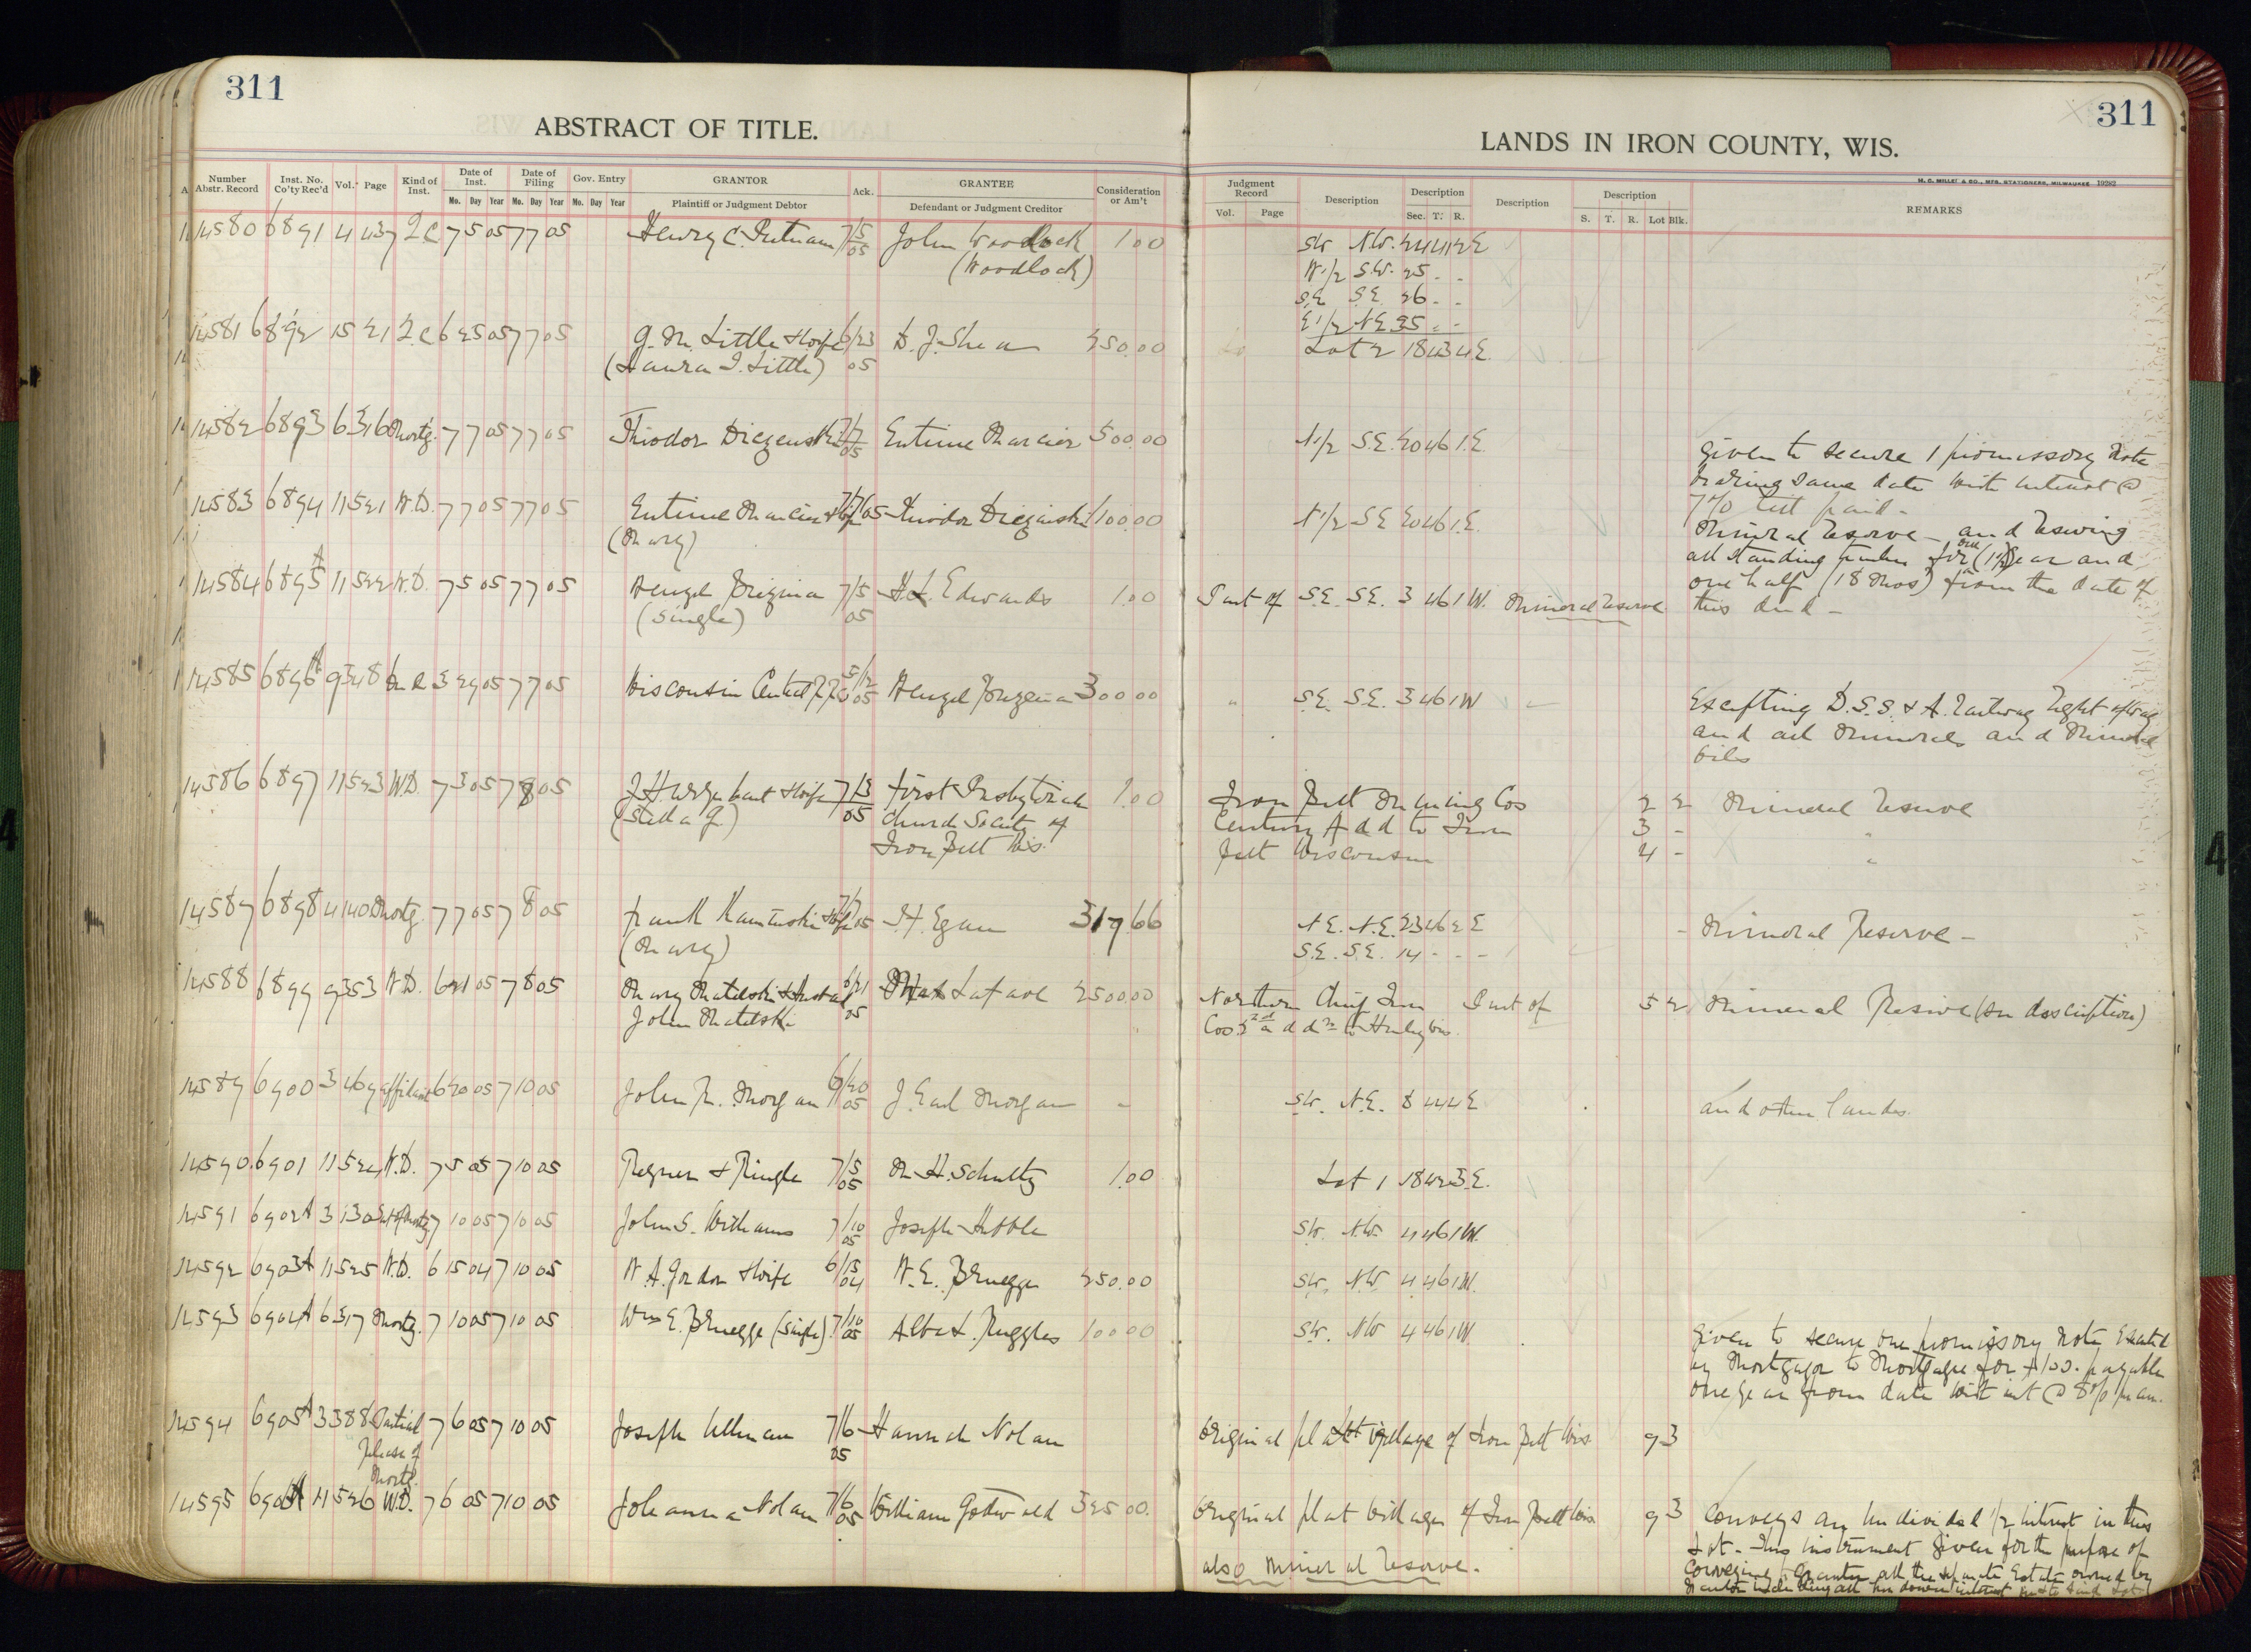 311
ABSTRACT OF TITLE.
Number Abstr. Record Inst. No. Co'ty Rec'd Vol. Page Kind of Inst. Date of Inst. Date of Filing Gov. Entry GRANTOR Ack. GRANTEE Consideration or Am't
Mo. Day Year Mo. Day Year Mo. Day Year Plaintiff or Judgment Debtor Defendant or Judgment Creditor
14580 6891 4 437 Q.C. 7 5 05 7 7 05 Henry C. Putnam 7/5 05 John Woodlock 1.00
(Woodlock)
14581 6892 15 21 Q.C. 6 23 05 7 7 05 G. M. Little & wife 6/23 05 D. J. Shea 250.00
(Laura I. Little)
14582 6893 6 316 Mortg. 7 7 05 7 7 05 Theodor 7/7 05 500.00
14583 6894 11 521 W.D. 7 7 05 7 7 05 & wife 7/7/05 Theodor 1100.00
(Mary)
14584 6895 A 11 522 W.D. 7 5 05 7 7 05 7/5 05 Edwards 1.00
(Single)
14585 6896 A 9 348 3 29 05 7 7 05 Wisconsin Central 5/12 05 300.00
14586 6897 11 523 W.D. 7 3 05 7 8 05 & wife 7/3 05 First Presbyterian 1.00
(Stella G.) Church Society of
Iron Belt Wis.
14587 6898 4 140 Mortg. 7 7 05 7 8 05 Frank & wife 7/7 05 Egan 317.66
(Mary)
14588 6899 9 353 W.D. 6 21 05 7 8 05 Mary Matelski & husband 6/21 05 Max Lafave 2500.00
John Matelski
14589 6900 3 469 affidavit 6 20 05 7 10 05 John R. Morgan 6/20 05 J. Earl Morgan -
14590 6901 11 524 W.D. 7 5 05 7 10 05 Regner & Ringle 7/5 05 M. H. Schultz 1.00
14591 6902 A 3 130 Sat of Mortg 7 10 05 7 10 05 John S. Williams 7/10 05 Joseph
14592 6903 A 11 525 W.D. 6 15 04 7 10 05 W. A. Gordon & wife 6/15 04 W. E. Bruegge 250.00
14593 6904 A 6 317 Mortg. 7 10 05 7 10 05 Wm E. Bruegge (single) 7/10 05 Ruggles 100.00
14594 6905 A 3 388 Partial 7 6 05 7 10 05 Joseph Ullman 7/6 05 Hannah Nolan
Release of
Mortg.
14595 6906 A 11 526 W.D. 7 6 05 7 10 05 Johanna Nolan 7/6 05 William 325.00
311
LANDS IN IRON COUNTY, WIS.
H. C. MILLER CO., MFG. STATIONERS, MILWAUKEE 19282
Judgment Record Description Description Description Description REMARKS
Vol. Page Sec. T. R. S. T. R. Lot Blk.
SW. N.W. 24 41 2E
W1/2 S.W. 25 - -
S.E. S.E. 26 - -
E1/2 N.E. 35 - -
Lot 2 18 43 4E.
N1/2 S.E. 20 46 1E. Given to secure 1 promissory note
bearing same date with interest @
7% till paid -
N1/2 S.E. 20 46 1E. Mineral reserve - and reserving
all standing timber for one (1) year and
one half (18 Mos) from the date of
this deed -
Part of S.E. S.E. 3 46 1W. Mineral reserve
" S.E. S.E. 3 46 1W Excepting D.S.S. & A. Railway right of way
and all minerals and mineral
oils
Iron Belt Mining Cos 2 2 Mineral reserve
Century Add to Iron 3 - "
Belt Wisconsin 4 - "
N.E. N.E. 23 46 2E - Mineral Reserve -
S.E. S.E. 14 - - -
Northern Chief Iron Part of 5 2 Mineral Reserve (see description)
Cos 2nd addn to Hurley Wis.
SW. N.E. 8 44 4E and other lands.
Lot 1 18 42 3E.
SW. N.W. 4 46 1W.
SW. N.W. 4 46 1W.
SW. NW 4 46 1W. Given to secure one promissory note executed
by Mortgagor to Mortgagee for $100. payable
one year from date with int @ 8% per an.
Original plat Village of Iron Belt Wis 9 3
Original plat Village of Iron Belt Wis 9 3 Conveys an undivided 1/2 interest in this
also mineral reserve. Lot - This instrument given for the purpose of
conveying Grantee all the separate Estate owned by